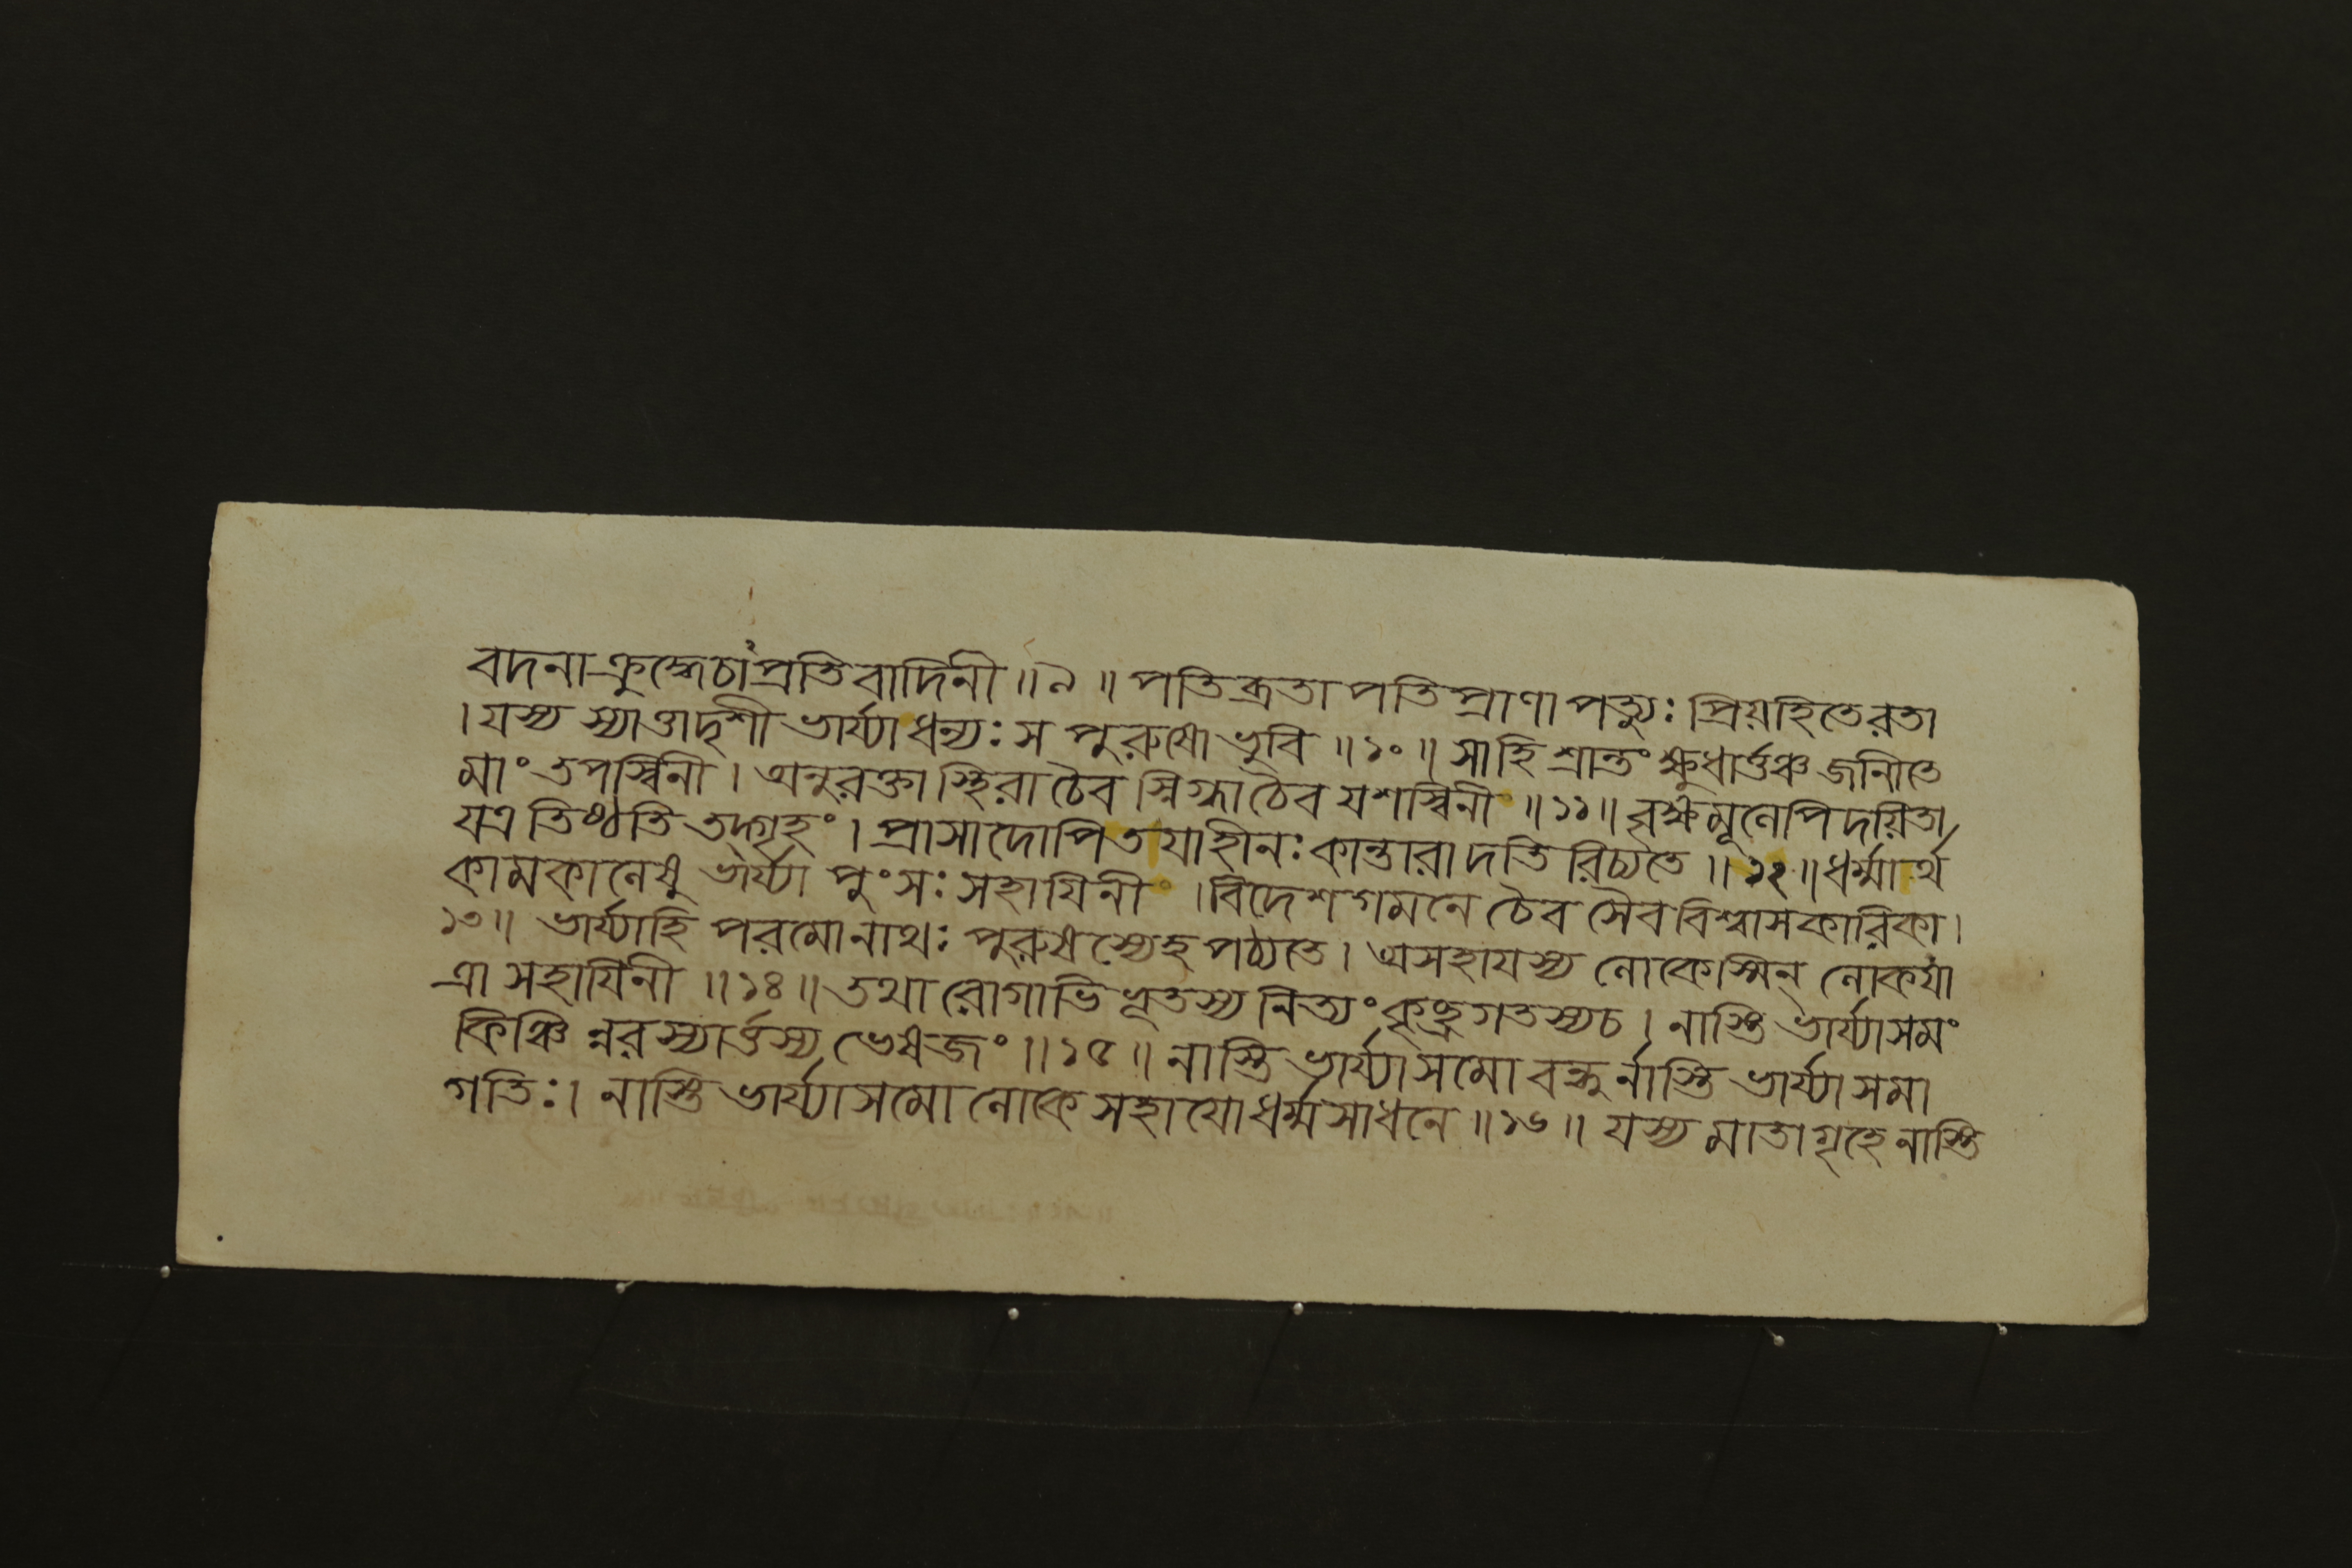 বদনা ক্রুদ্ধেচাপ্রতিবাদিনী ॥ ৯ ॥ পতিব্রতা পতিপ্রাণা পত্যুঃ প্রিয়হিতেরতা
। যস্য স্যাত্তাদৃশী ভার্য্যা ধন্যঃ স পুরুষো ভুবি ॥ ১০ ॥ সাহি শ্রান্তং ক্ষুধার্ত্তঞ্চ জানীতে
মাং তপস্বিনী । অনুরক্তা স্থিরা চৈব স্নিগ্ধা চৈব যশস্বিনী ॥ ১১ ॥ বৃক্ষমূলেপি দয়িতা
যত্র তিষ্ঠতি তদ্গৃহং । প্রাসাদোপি তযাহীনঃ কান্তারাদতি রিচ্যতে ॥ ১২ ॥ ধর্ম্মার্থ
কামকালেষু ভার্য্যা পুংসঃ সহাযিনী । বিদেশ গমনে চৈব সৈব বিশ্বাসকারিকা ।
১৩ ॥ ভার্য্যাহি পরমোনাথঃ পুরুষস্যেহ পঠ্যতে । অসহাযস্য লোকেস্মিন্ লোকযা
ত্রা সহাযিনী ॥ ১৪ ॥ তথা রোগাভিভূতস্য নিত্যং কৃচ্ছ্রগতস্যচ । নাস্তি ভার্য্যাসমং
কিঞ্চি ন্নরস্যার্ত্তস্য ভেষজং ॥ ১৫ ॥ নাস্তি ভার্য্যাসমো বন্ধুর্নাস্তি ভার্য্যা সমা
গতিঃ । নাস্তি ভার্য্যাসমো লোকে সহাযো ধর্ম্মসাধনে ॥ ১৬ ॥ যস্য মাতা গৃহে নাস্তি